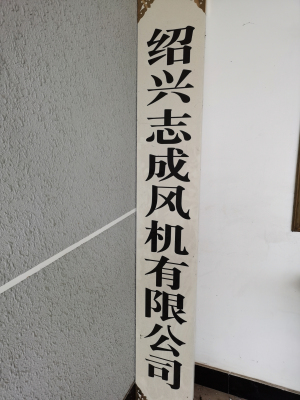 绍兴志成风机有限公司